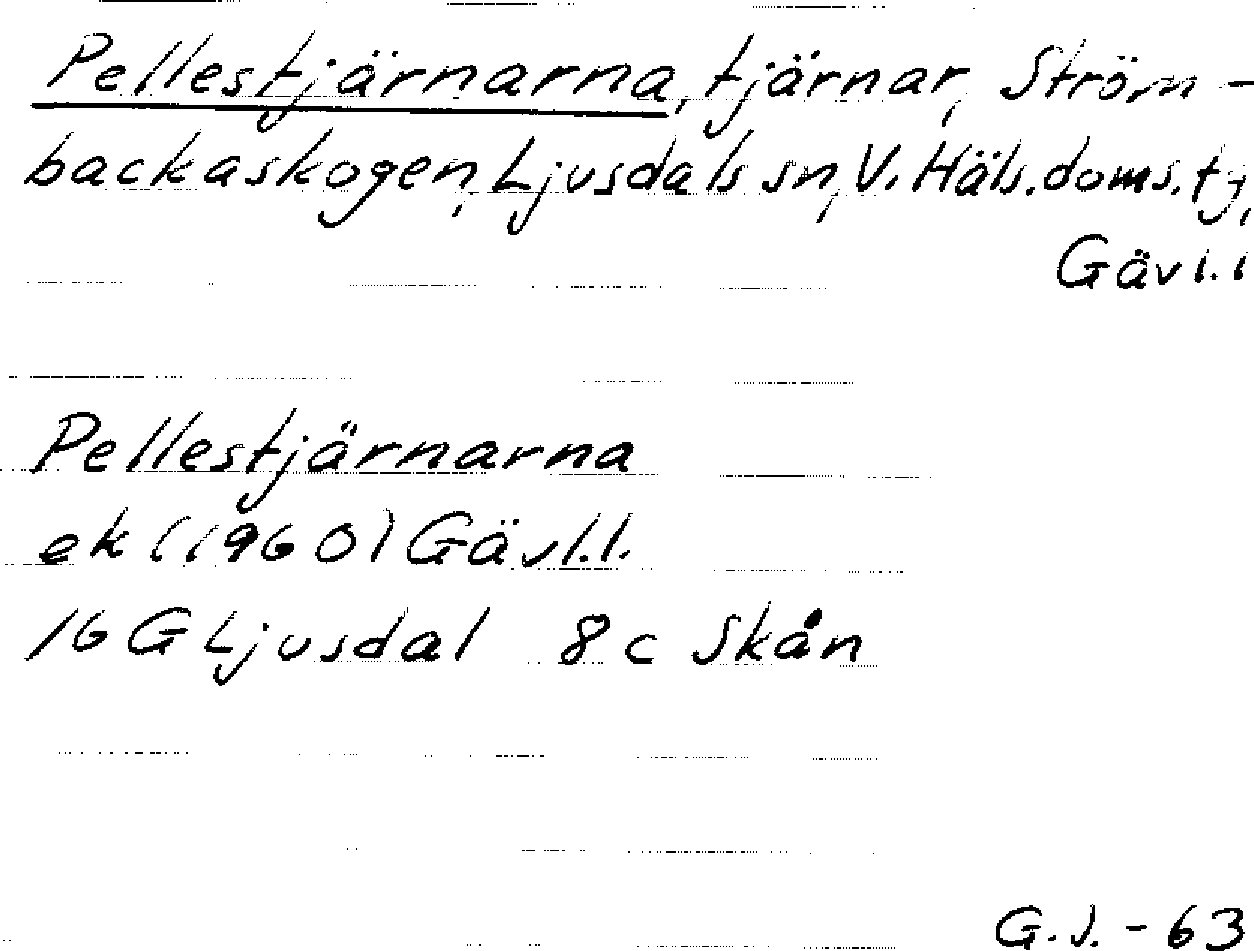 Pellestjärnarna, tjärnar, Ström-
backaskogen, Ljusdals sn, V. Häls. doms. tj,
Gävl. l
Pellestjärnarna
ek (1960) Gävl.l.
16 G Ljusdal 8 c Skån
G.J. - 63